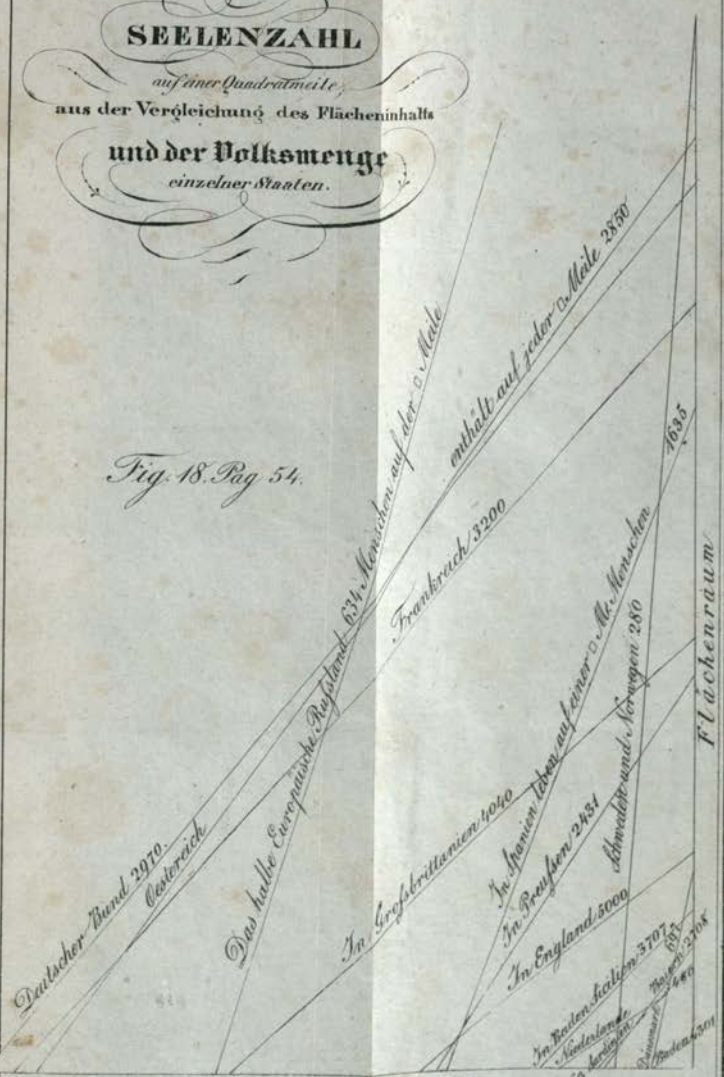 SEELENZAHL
auf einer Quadratmeile,
aus der Vergleichung des Flächeninhalts
und der Volksmenge
einzelner Staaten.
Fig. 18. Pag 54.
Deutscher Bund 2970.
Oestereich enthält auf jeder □ Meile 2850
Das halbe Europäische Rußland 634 Menschen auf der □ Meile
Frankreich 3200
In Großbrittanien 4040
In Spanien leben auf einer □ Me. Menschen 1635
In Preußen 2431
Schweden und Norwegen 280
In England 5000
In Beiden Sicilien 3707
Niederlande
Sardinien
Baiern 2708
Baden 4301
Flächenraum